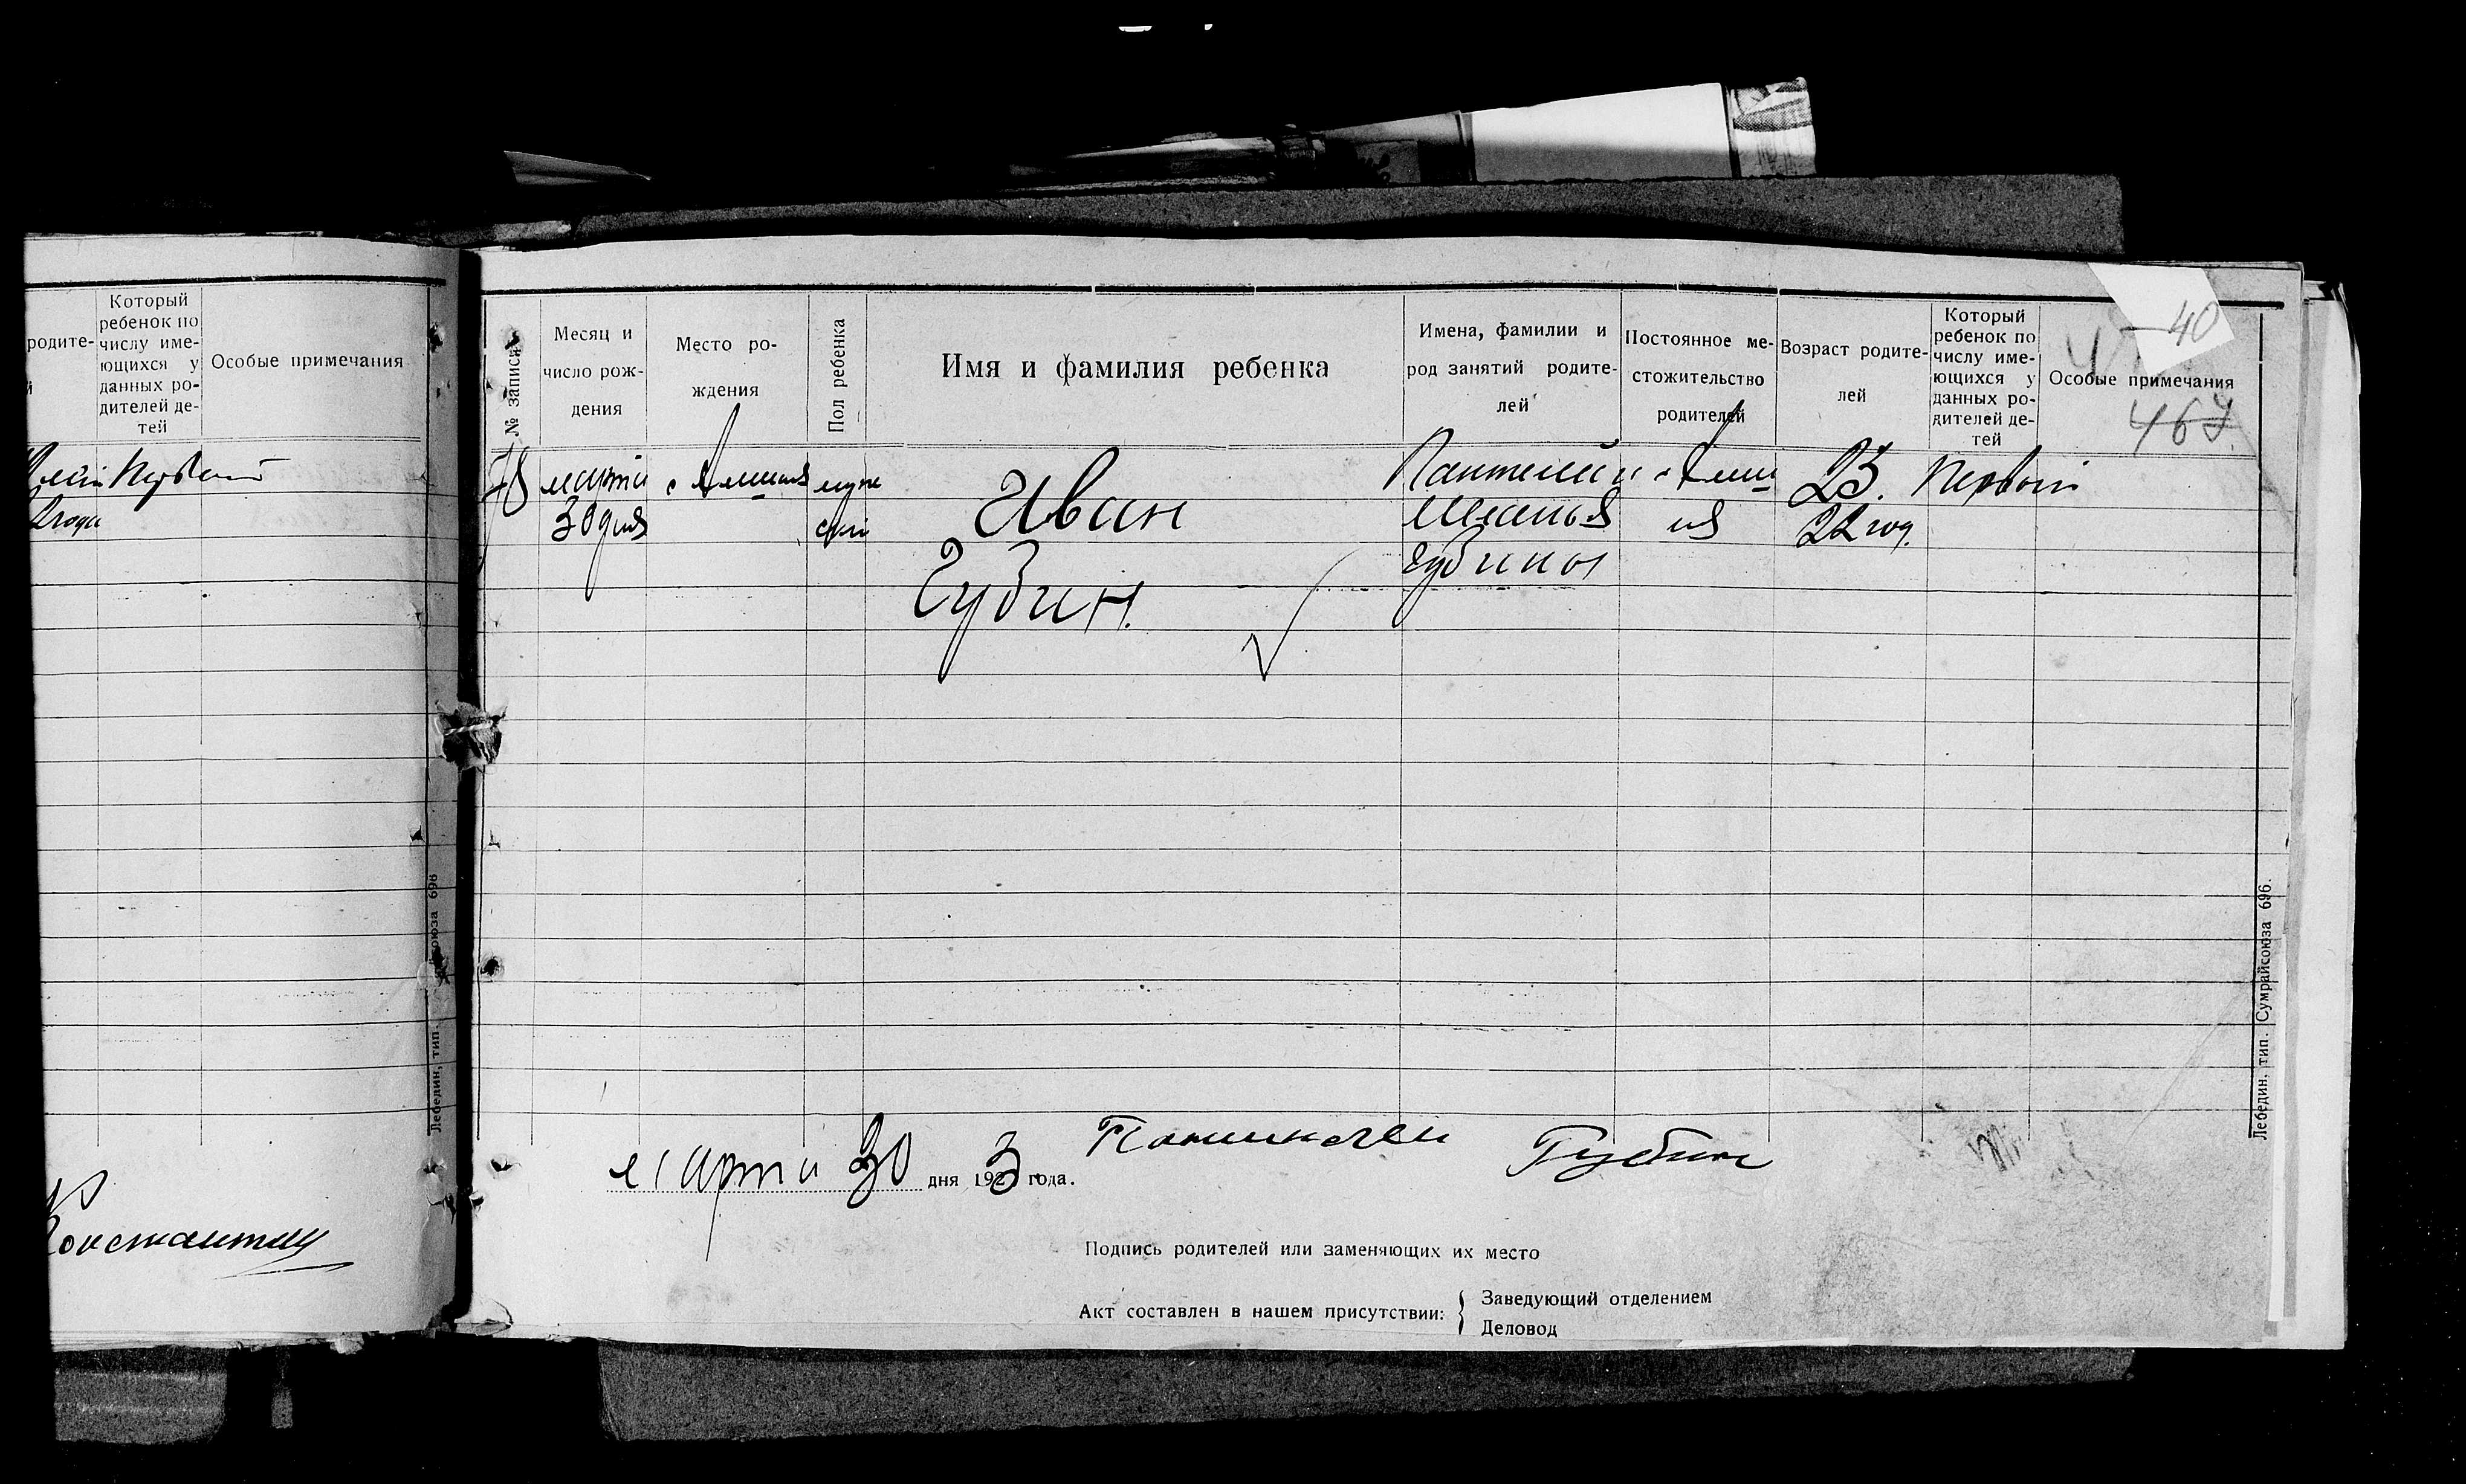 родите-
й
Который
ребенок по
числу име-
ющихся у
данных ро-
дителей де-
тей
Особые примечания
Первый
2 года
Константин
Лебедин, тип. 696
№ записи
Месяц и
число рож-
дения
Место ро-
ждения
Пол ребенка
Имя и фамилия ребенка
Имена, фамилии и
род занятий родите-
лей
Постоянное ме-
стожительство
родителей
Возраст родите-
лей
Который
ребенок по
числу име-
ющихся у
данных ро-
дителей де-
тей
Особые примечания
40
467
марта
30 дня
муж
ской
Иван
Губин.
Пантелей и
Меланья
Губины
23.
22 год.
Первый
марта 30 дня 1923 года.
Губин
Подпись родителей или заменяющих их место
Акт составлен в нашем присутствии:
Заведующий отделением
Деловод
Лебедин, тип. Сумрайсоюза 696.